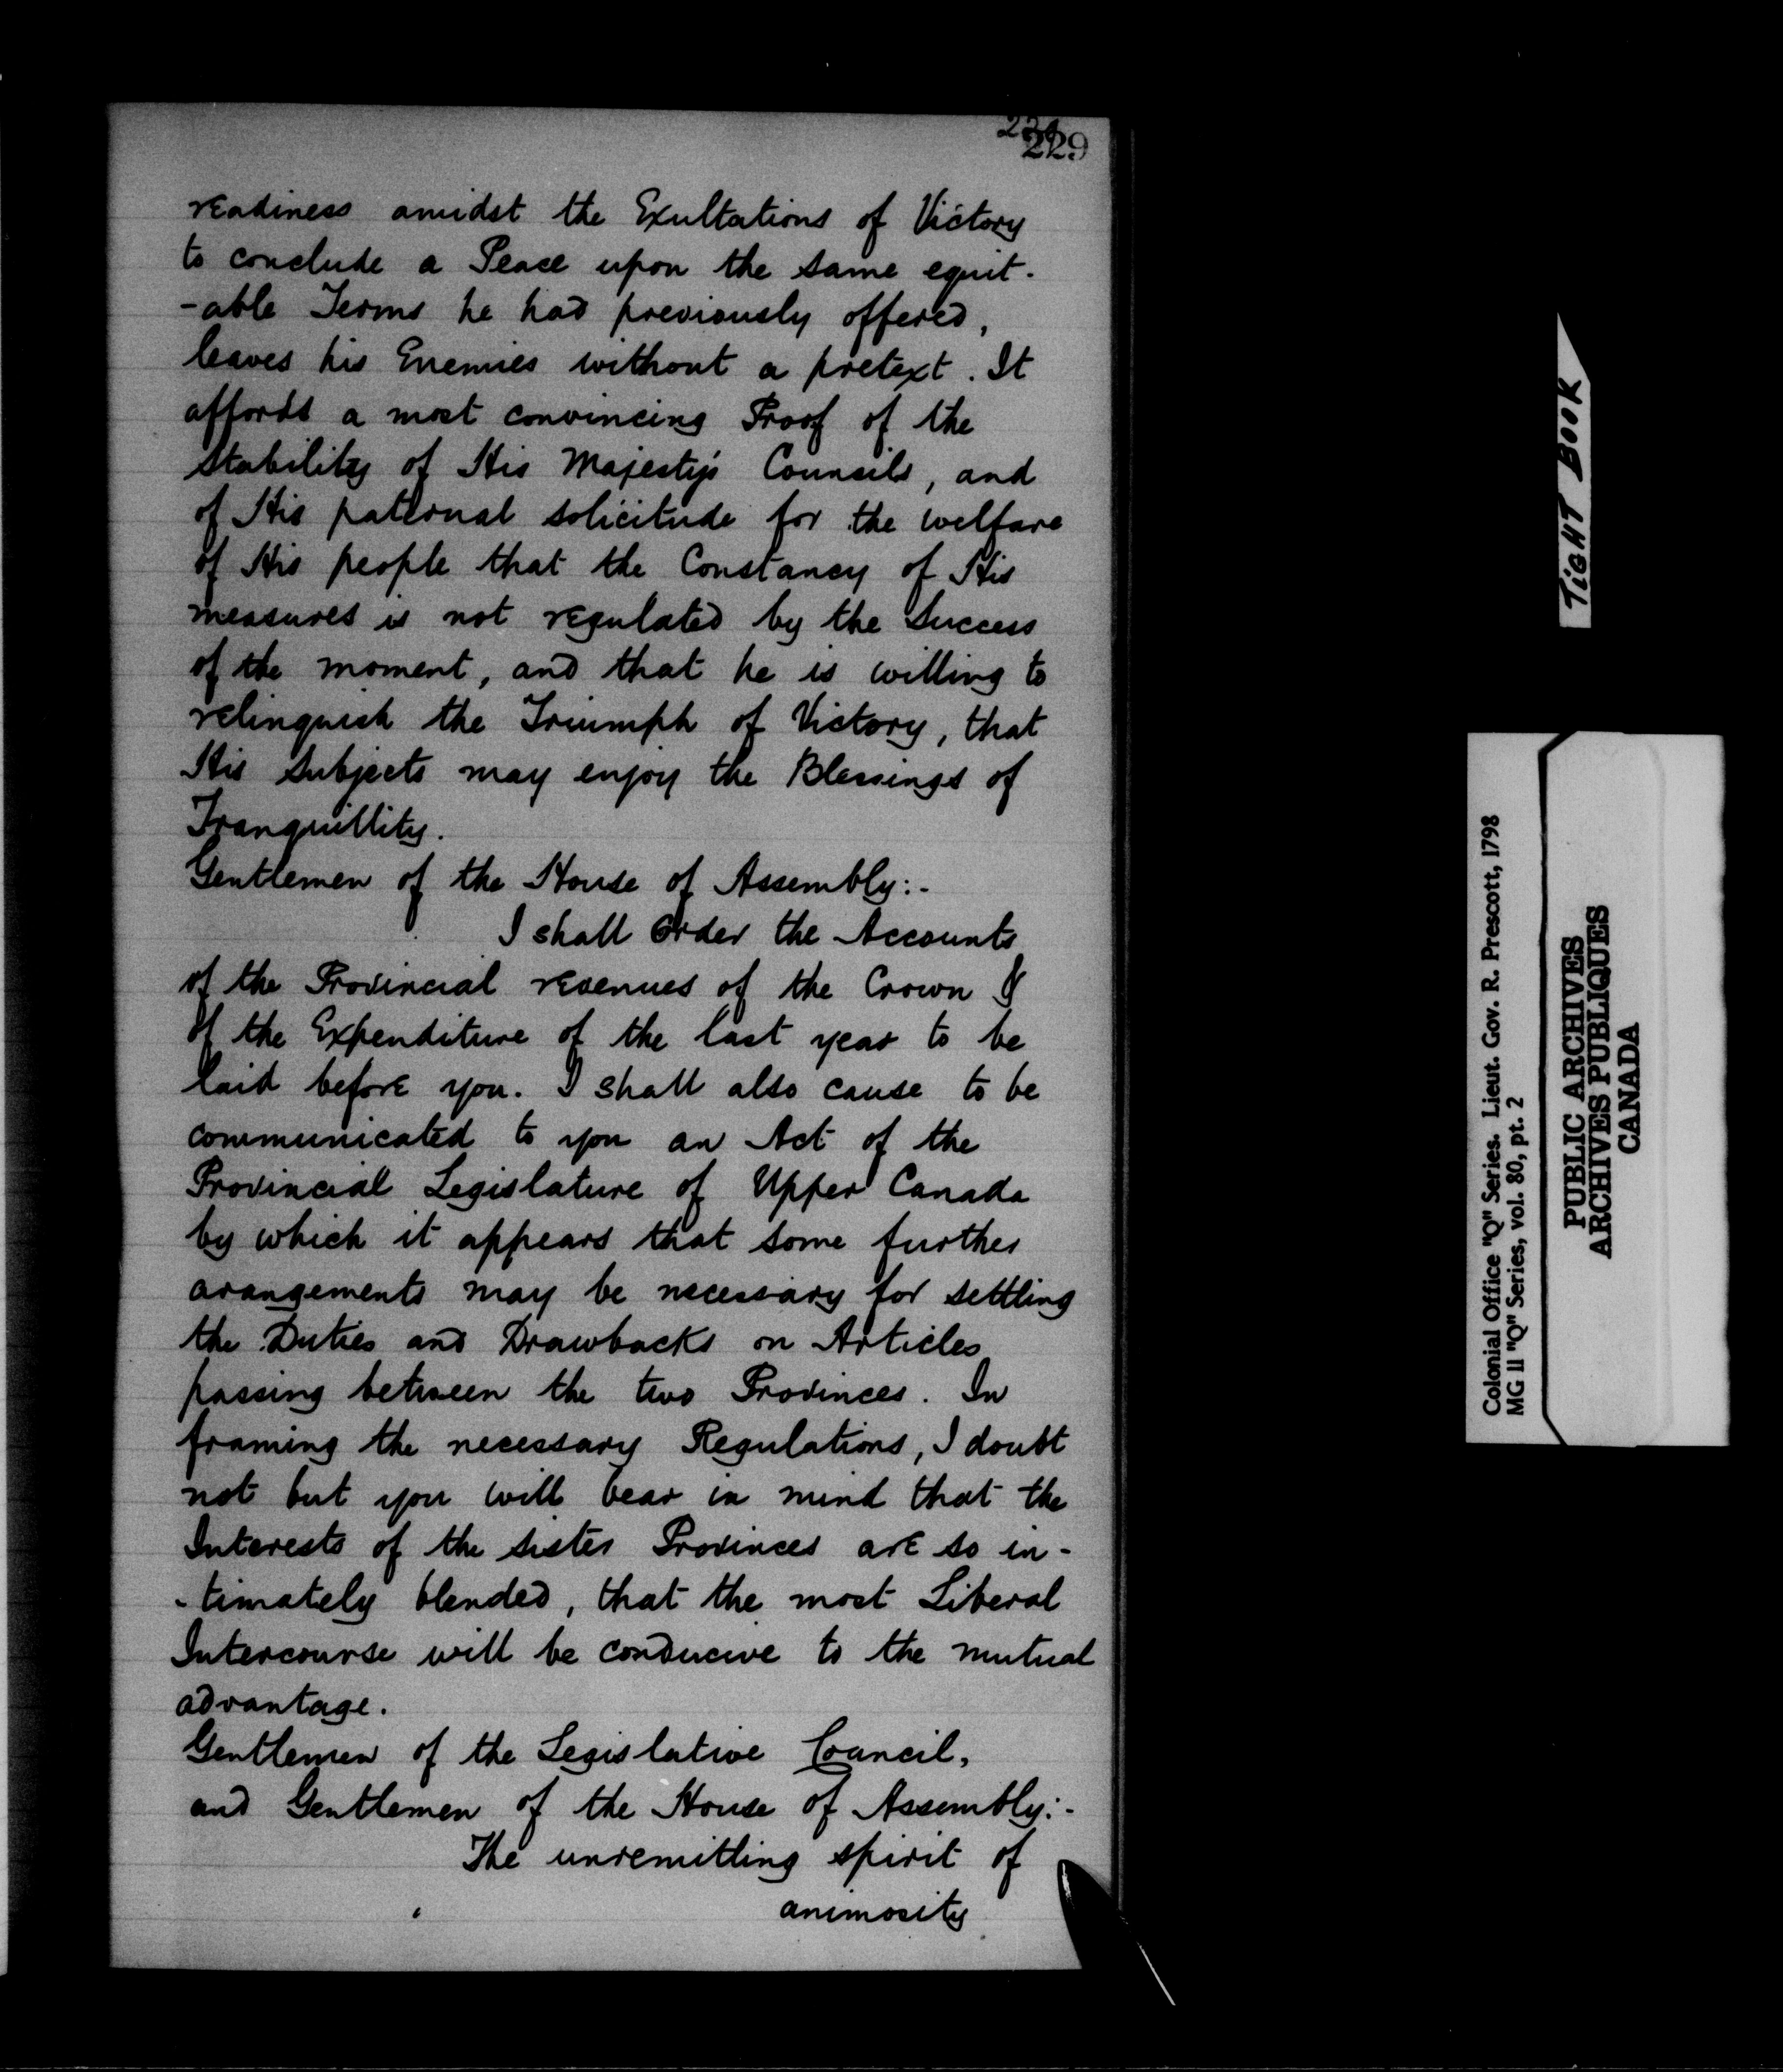 229
readiness amidst the Exultations of Victory
to conclude a Peace upon the same equit-
-able Terms he had previously offered,
leaves his Enemies without a pretext. It
affords a most convincing Proof of the
Stability of His Majesty's Counsils, and
of His paternal solicitude for the welfare
of His people that the Constancy of His
measures is not regulated by the Success
of the moment, and that he is willing to
relinquish the Triumph of Victory, that
His Subjects may enjoy the Blessings of
Tranquillity.
Gentlemen of the House of Assembly:-
I shall order the Accounts
of the Provincial revenues of the Crown &
of the Expenditure of the last year to be
laid before you. I shall also cause to be
communicated to you an Act of the
Provincial Legislature of Upper Canada
by which it appears that some further
arangements may be necessary for settling
the Duties and Drawbacks on Articles
passing between the two Provinces. In
framing the necessary Regulations, I doubt
not but you will bear in mind that the
Interests of the sister Provinces are so in-
-timately blended, that the most Liberal
Intercourse will be conducive to the mutual
advantage.
Gentlemen of the Legislative Council,
and Gentlemen of the House of Assembly:-
The unremitting spirit of
animosity
TIGHT BOOK
Colonial Office "Q" Series. Lieut. Gov. R. Prescott, 1798
MG 11 "Q" Series, vol. 80, pt. 2
PUBLIC ARCHIVES
ARCHIVES PUBLIQUES
CANADA